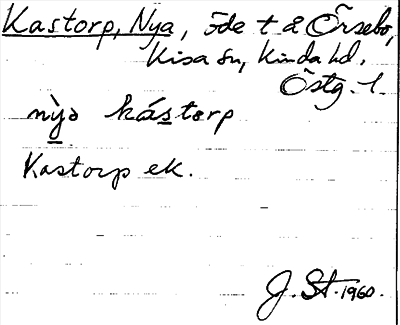 Kastorp, Nya, öde t å Örsebo,
Kisa sn, Kinda hd.
Östg. l.
nỳa kástorp
Kastorp ek.
J. St. 1960.